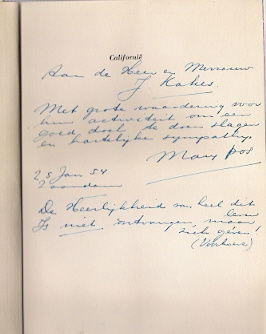 Californië
Aan de Heer en Mevrouw
J. Kakes.
Met grote waardering voor
hun activiteit om een
goed doel te doen slagen
en hartelijke sympathie,
Mary Pos
25 Jan 54
Zaandam
De Heerlijkheid van heel dit
leven
Is niet ontvangen maar
zich géven!